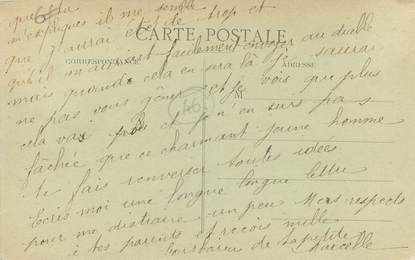 m'expliques il me semble
que j'aurai été de trop et
qu'il m'aurait facilement envoyer au diable
CARTE POSTALE
CORRESPONDANCE
ADRESSE
mais quand cela en sera là je saurai
ne pas vous gêner et je vois que plus
cela va plus et je n'en suis pas
46
fâchée que ce charmant jeune homme
te fais renverser toutes idées
Ecris moi une longue longue lettre
pour me distraire un peu Mes respects
à tes parents et reçois mille
de ta petite
Marcelle